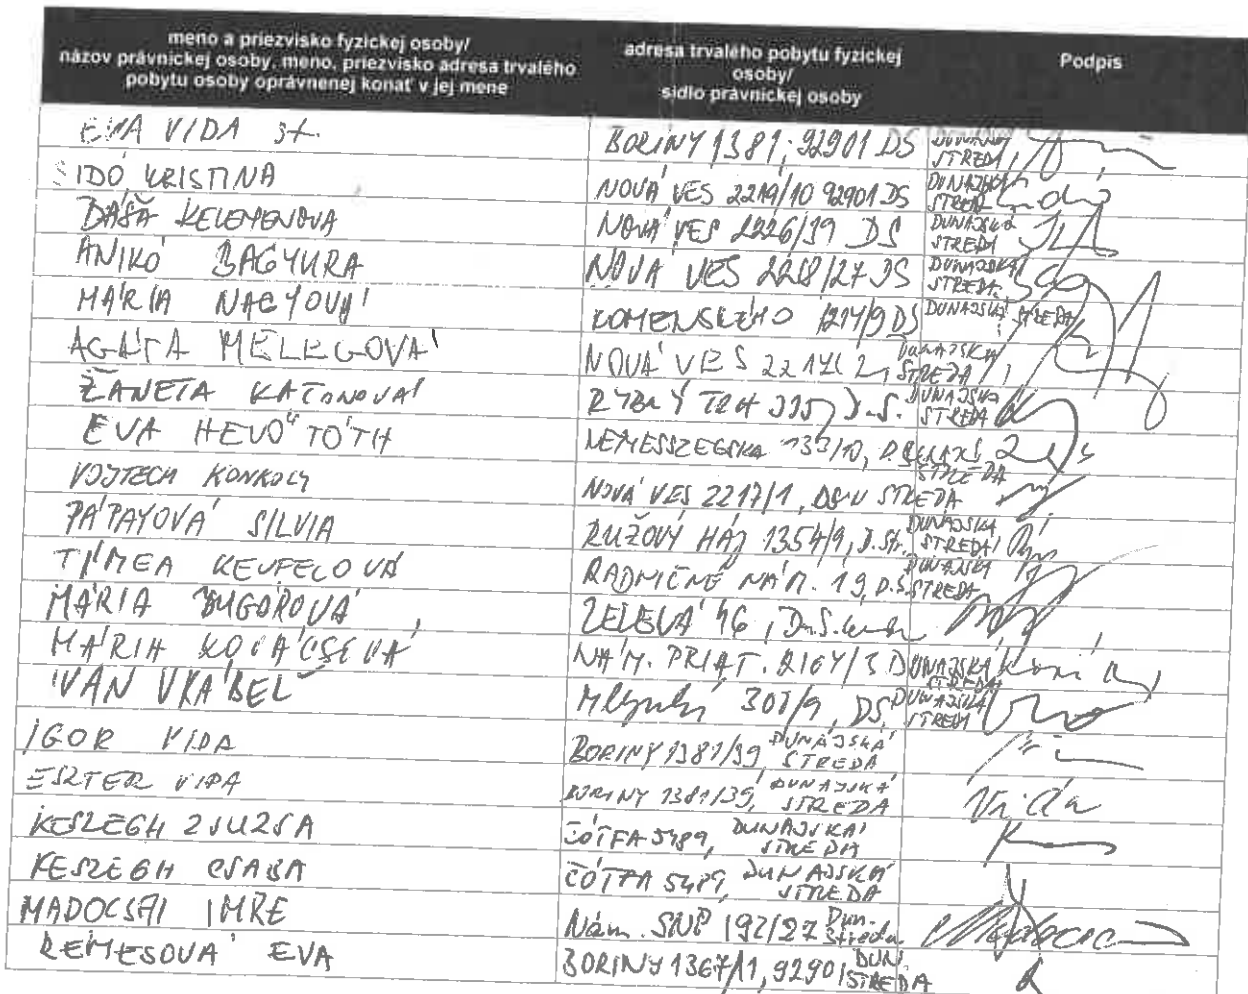 meno a priezvisko fyzickej osoby/
názov právnickej osoby, meno, priezvisko adresa trvalého
pobytu osoby oprávnenej konať v jej mene
adresa trvalého pobytu fyzickej
osoby/
sídlo právnickej osoby
Podpis
EVA VIDA st. BORINY 1381, 92901 DS DUNAJSKÁ STREDA
SIDÓ KRISTINA NOVÁ VES 2219/10 92901 DS DUNAJSKÁ STREDA Sidó
DAŠA KELEMENOVÁ NOVÁ VES 2226/39 DS DUNAJSKÁ STREDA
ANIKÓ BAGYURA NOVÁ VES 2218/27 DS DUNAJSKÁ STREDA
MÁRIA NAGYOVÁ KOMENSKÉHO 1214/9 DS DUNAJSKÁ STREDA
AGÁTA MELEGOVÁ NOVÁ VES DUNAJSKÁ STREDA
ŽANETA KATONOVÁ RYBNÝ TRH 335, D.S. DUNAJSKÁ STREDA
EVA HEVŐ TÓTH NEMESSZEGSKA 133/10, D. STREDA
VOJTECH KONKOLY NOVÁ VES 2217/1, STREDA
PÁPAYOVÁ SILVIA RUŽOVÝ HÁJ 1354/9, D.Str. DUNAJSKÁ STREDA
TÍMEA KEVFELOVÁ RADNIČNÉ NÁM. 19, D.S. DUNAJSKÁ STREDA
MÁRIA BUGÁROVÁ 46, D.S.
MÁRIA KOVÁCSEVÁ NÁM. PRIAT. 2164/3 DUNAJSKÁ STREDA
IVAN VRÁBEL DS, DUNAJSKÁ STREDA
IGOR VIDA BORINY 1381/39, DUNAJSKÁ STREDA
ESZTER VIDA BORINY 1381/39, DUNAJSKÁ STREDA Vida
KESZEGH ZSUZSA ČÓTFA 5489, DUNAJSKÁ STREDA
KESZEGH CSABA ČÓTFA 5489, DUNAJSKÁ STREDA
MADOCSAI IMRE Nám. SNP 192/27 Dun. Streda
REMESOVÁ EVA BORINY 1367/11, 92901 DUN. STREDA